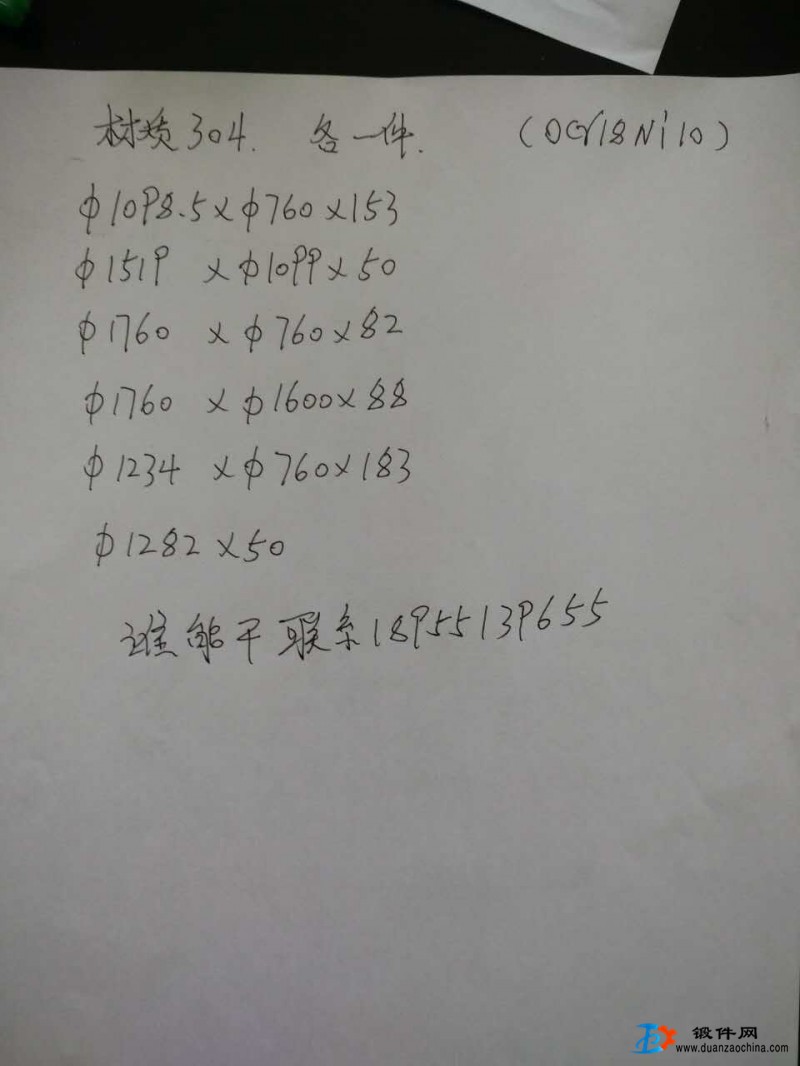 材质304. 各一件. (0Cr18Ni10)
φ1098.5×φ760×153
φ1519 ×φ1099×50
φ1760 ×φ760×82
φ1760 ×φ1600×88
φ1234 ×φ760×183
φ1282×50
谁能干联系18955139655
锻件网
www.duanzaochina.com